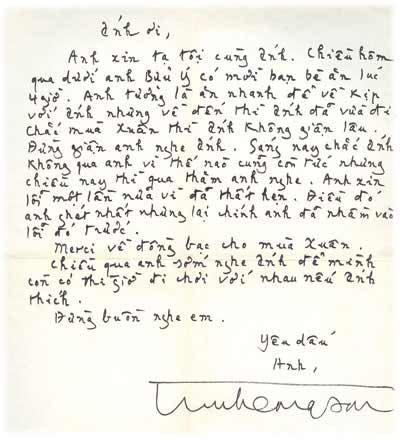 Ánh ơi,
Anh xin tạ tội cùng Ánh. Chiều hôm
qua dưới anh Bửu Ý có mời bạn bè ăn lúc
4 giờ. Anh tưởng là ăn nhanh để về kịp
với Ánh nhưng về đến thì Ánh đã vừa đi
Chắc mùa Xuân thì Ánh không giận lâu.
Đừng giận anh nghe Ánh. Sáng nay chắc Ánh
không qua anh vì thế nào cũng còn tức nhưng
chiều nay thì qua thăm anh nghe. Anh xin
lỗi một lần nữa vì đã thất hẹn. Điều đó
anh ghét nhất nhưng lại chính anh đã nhằm vào
lỗi đó trước.
Merci về đồng bạc cho mùa Xuân.
Chiều qua anh sớm nghe Ánh để mình
còn có thì giờ đi chơi với nhau nếu Ánh
thích.
Đừng buồn nghe em.
Yêu dấu
Anh,